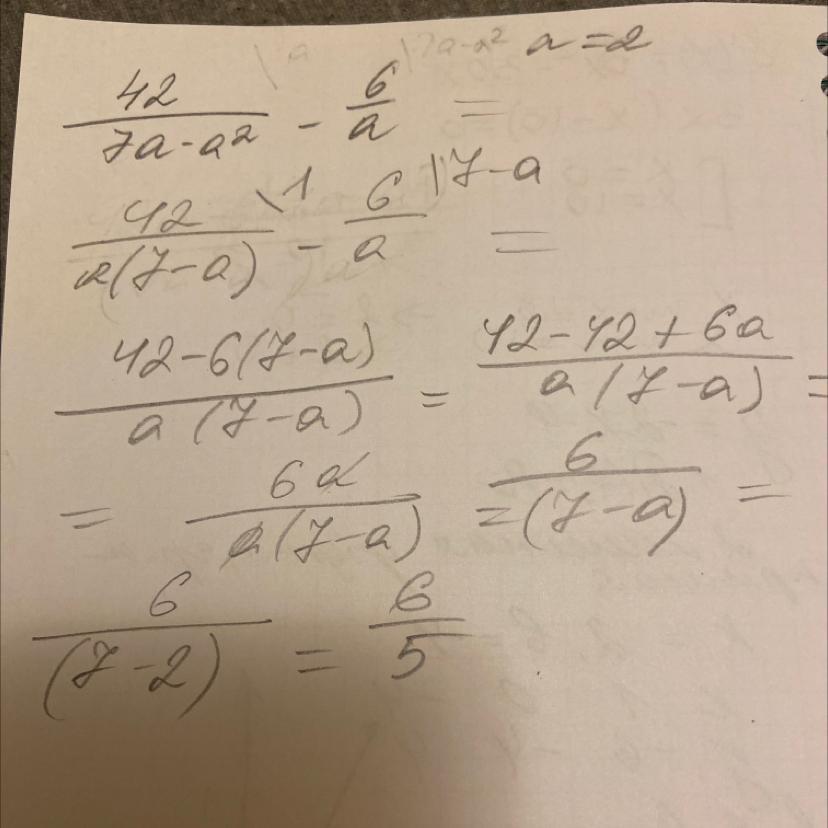 \a \7a-a² a=2
42/(7a-a²) - 6/a =
42/(a(7-a)) \1 - 6/a \7-a =
(42-6(7-a))/(a(7-a)) = (42-42+6a)/(a(7-a)) =
= 6a/(a(7-a)) = 6/(7-a) =
6/(7-2) = 6/5